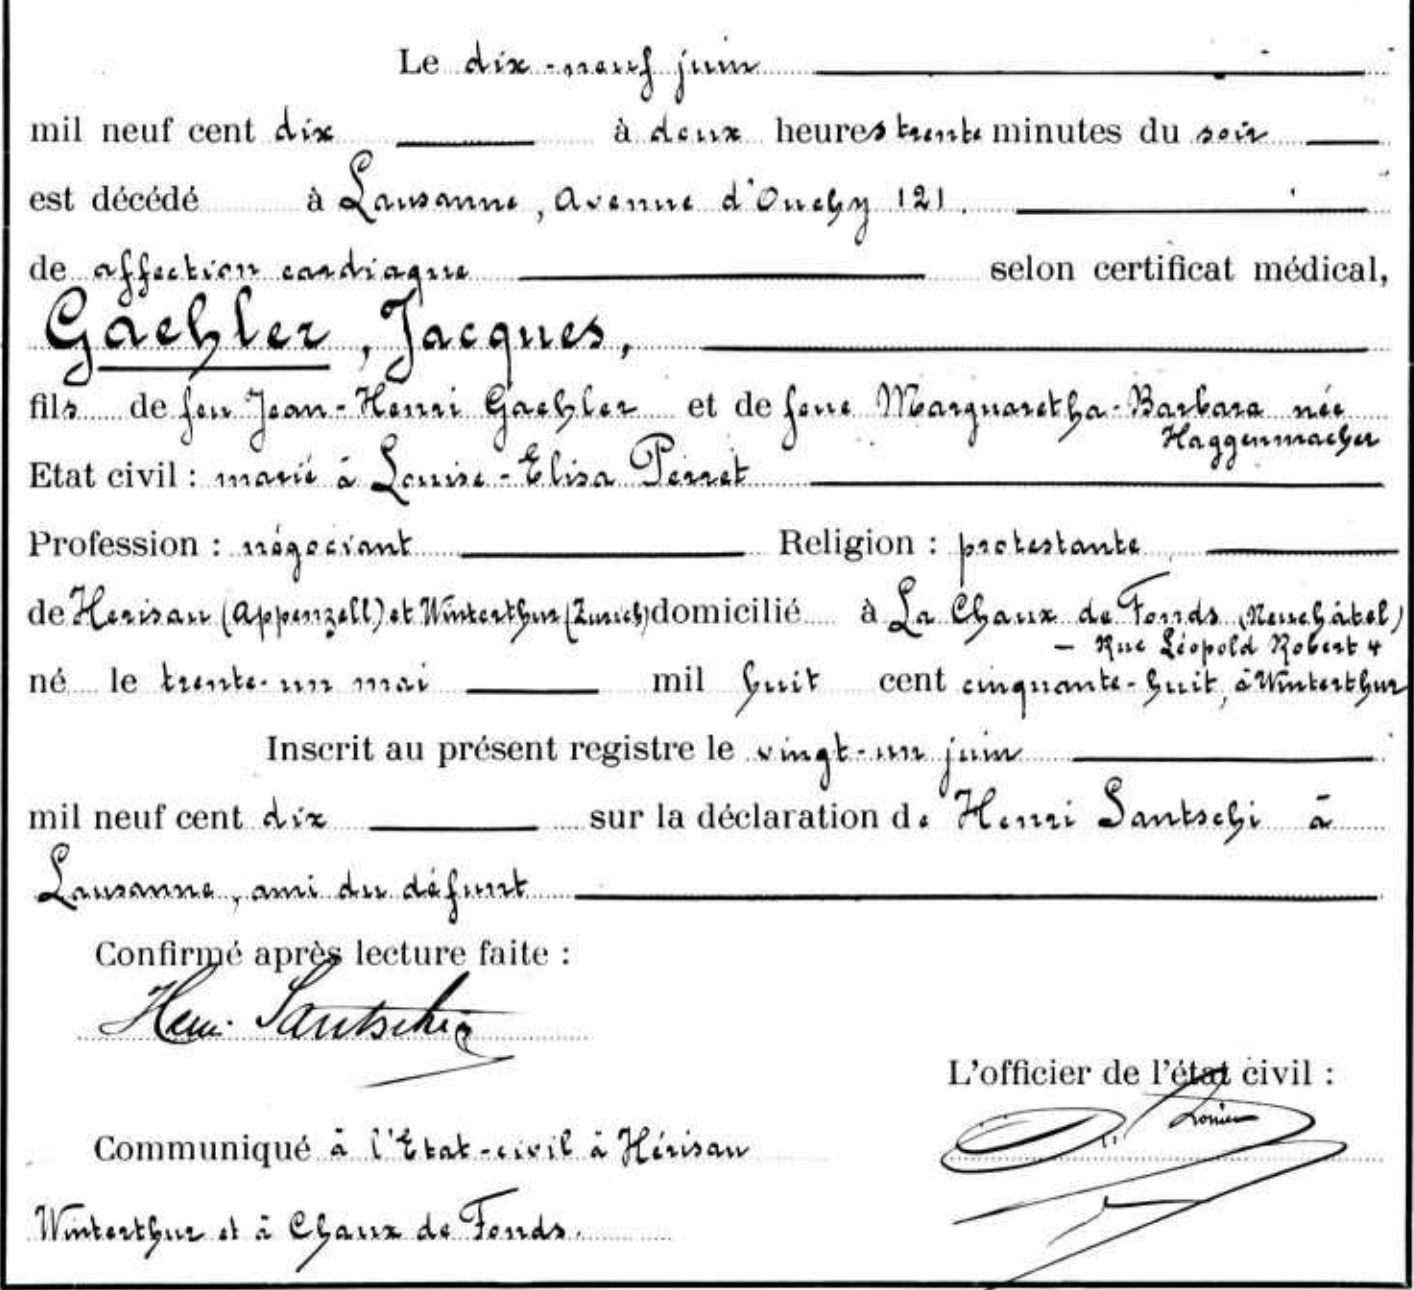 Le dix-neuf juin
mil neuf cent dix à deux heures trente minutes du soir
est décédé à Lausanne, Avenue d'Ouchy 121.
de affection cardiaque selon certificat médical,
Gaehler, Jacques,
fils de feu Jean-Henri Gaehler et de feue Marguaretha-Barbara née
Haggenmacher
Etat civil : marié à Louise-Elisa Perret
Profession : négociant Religion : protestante
de Herisau (Appenzell) et Winterthur (Zurich) domicilié à La Chaux de Fonds (Neuchâtel)
– Rue Léopold Robert 4
né le trente-un mai mil huit cent cinquante-huit, à Winterthur
Inscrit au présent registre le vingt-un juin
mil neuf cent dix sur la déclaration de Henri Santschi à
Lausanne, ami du défunt
Confirmé après lecture faite :
Henri Santschi
L'officier de l'état civil :
Communiqué à l'Etat-civil à Hérisau
Winterthur et à Chaux de Fonds.